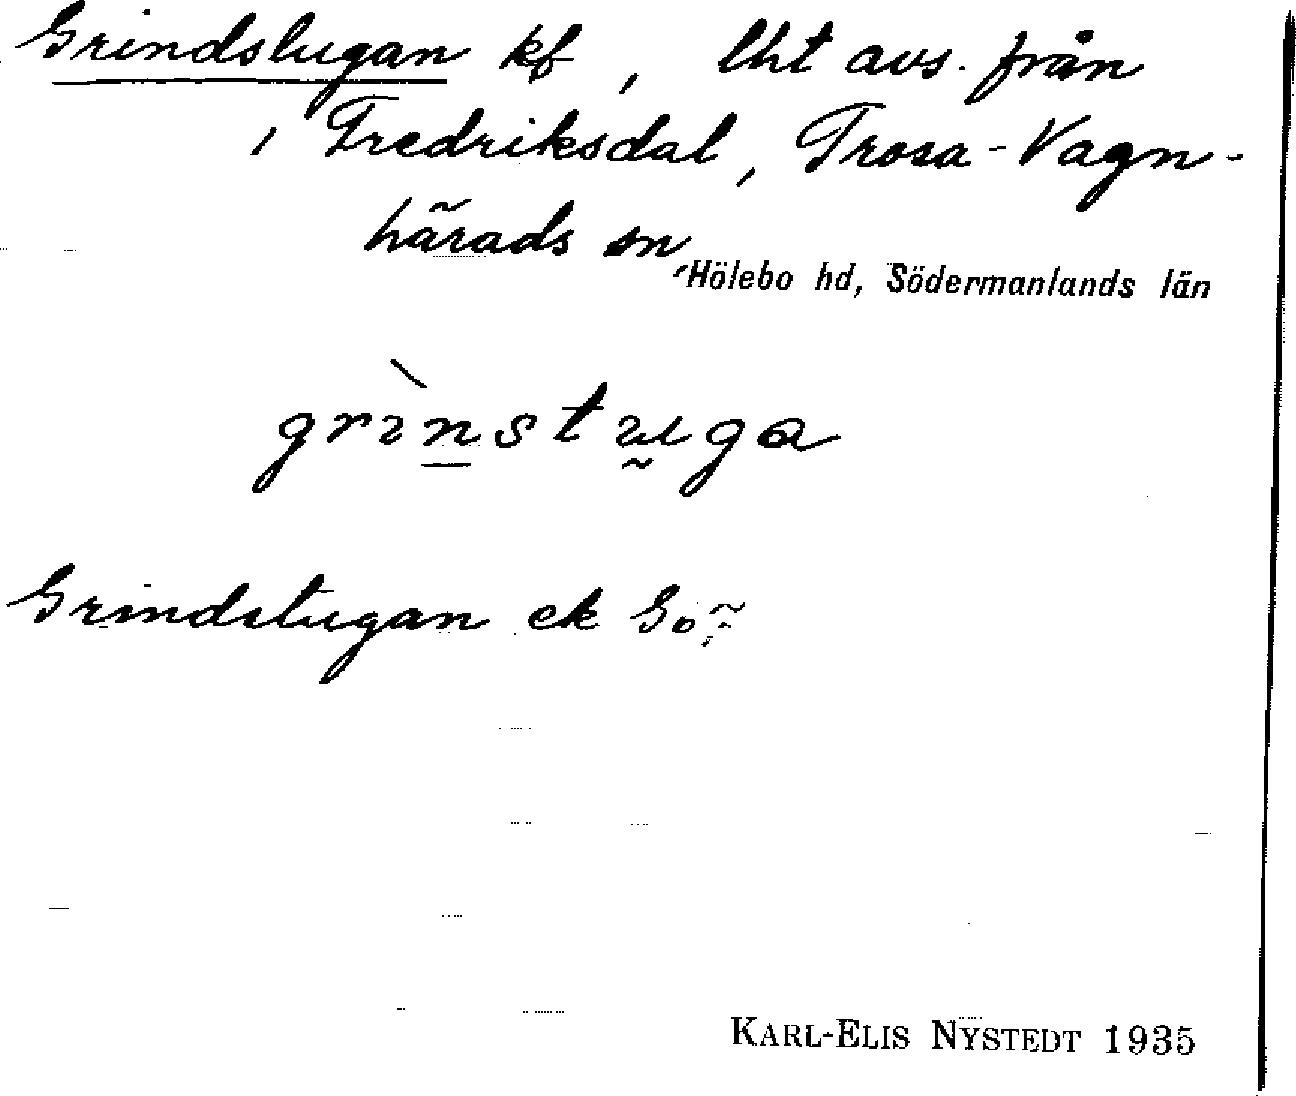 Grindstugan kf, lht avs. från
, Fredriksdal, Trosa-Vagn-
härads sn,
Hölebo hd, Södermanlands län
grìnstuga
Grindstugan ek
KARL-ELIS NYSTEDT 1935